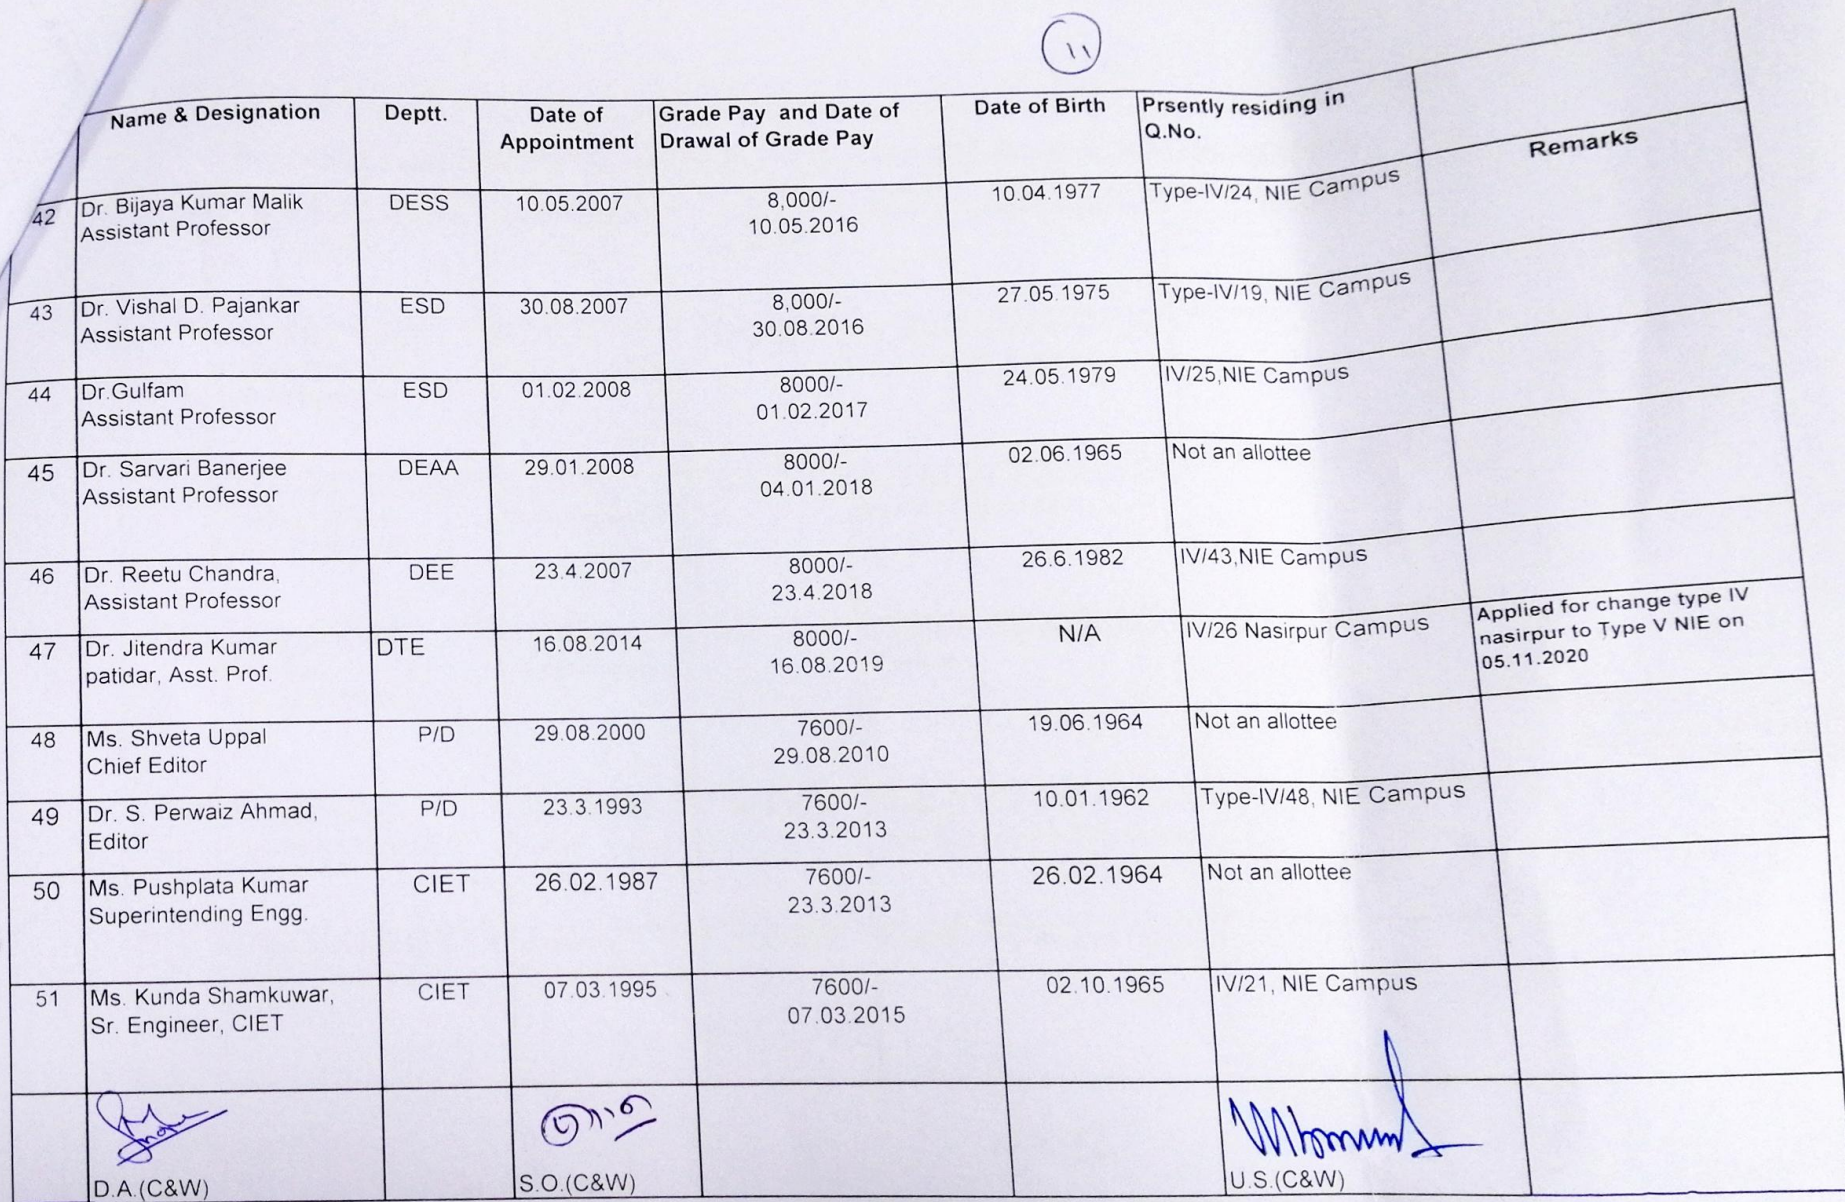 11
Name & Designation
Deptt.
Date of
Appointment
Grade Pay and Date of
Drawal of Grade Pay
Date of Birth
Prsently residing in
Q.No.
Remarks
42
Dr. Bijaya Kumar Malik
Assistant Professor
DESS
10.05.2007
8,000/-
10.05.2016
10.04.1977
Type-IV/24, NIE Campus
43
Dr. Vishal D. Pajankar
Assistant Professor
ESD
30.08.2007
8,000/-
30.08.2016
27.05.1975
Type-IV/19, NIE Campus
44
Dr.Gulfam
Assistant Professor
ESD
01.02.2008
8000/-
01.02.2017
24.05.1979
IV/25,NIE Campus
45
Dr. Sarvari Banerjee
Assistant Professor
DEAA
29.01.2008
8000/-
04.01.2018
02.06.1965
Not an allottee
46
Dr. Reetu Chandra,
Assistant Professor
DEE
23.4.2007
8000/-
23.4.2018
26.6.1982
IV/43,NIE Campus
47
Dr. Jitendra Kumar
patidar, Asst. Prof.
DTE
16.08.2014
8000/-
16.08.2019
N/A
IV/26 Nasirpur Campus
Applied for change type IV
nasirpur to Type V NIE on
05.11.2020
48
Ms. Shveta Uppal
Chief Editor
P/D
29.08.2000
7600/-
29.08.2010
19.06.1964
Not an allottee
49
Dr. S. Perwaiz Ahmad,
Editor
P/D
23.3.1993
7600/-
23.3.2013
10.01.1962
Type-IV/48, NIE Campus
50
Ms. Pushplata Kumar
Superintending Engg.
CIET
26.02.1987
7600/-
23.3.2013
26.02.1964
Not an allottee
51
Ms. Kunda Shamkuwar,
Sr. Engineer, CIET
CIET
07.03.1995
7600/-
07.03.2015
02.10.1965
IV/21, NIE Campus
D.A.(C&W)
S.O.(C&W)
U.S.(C&W)